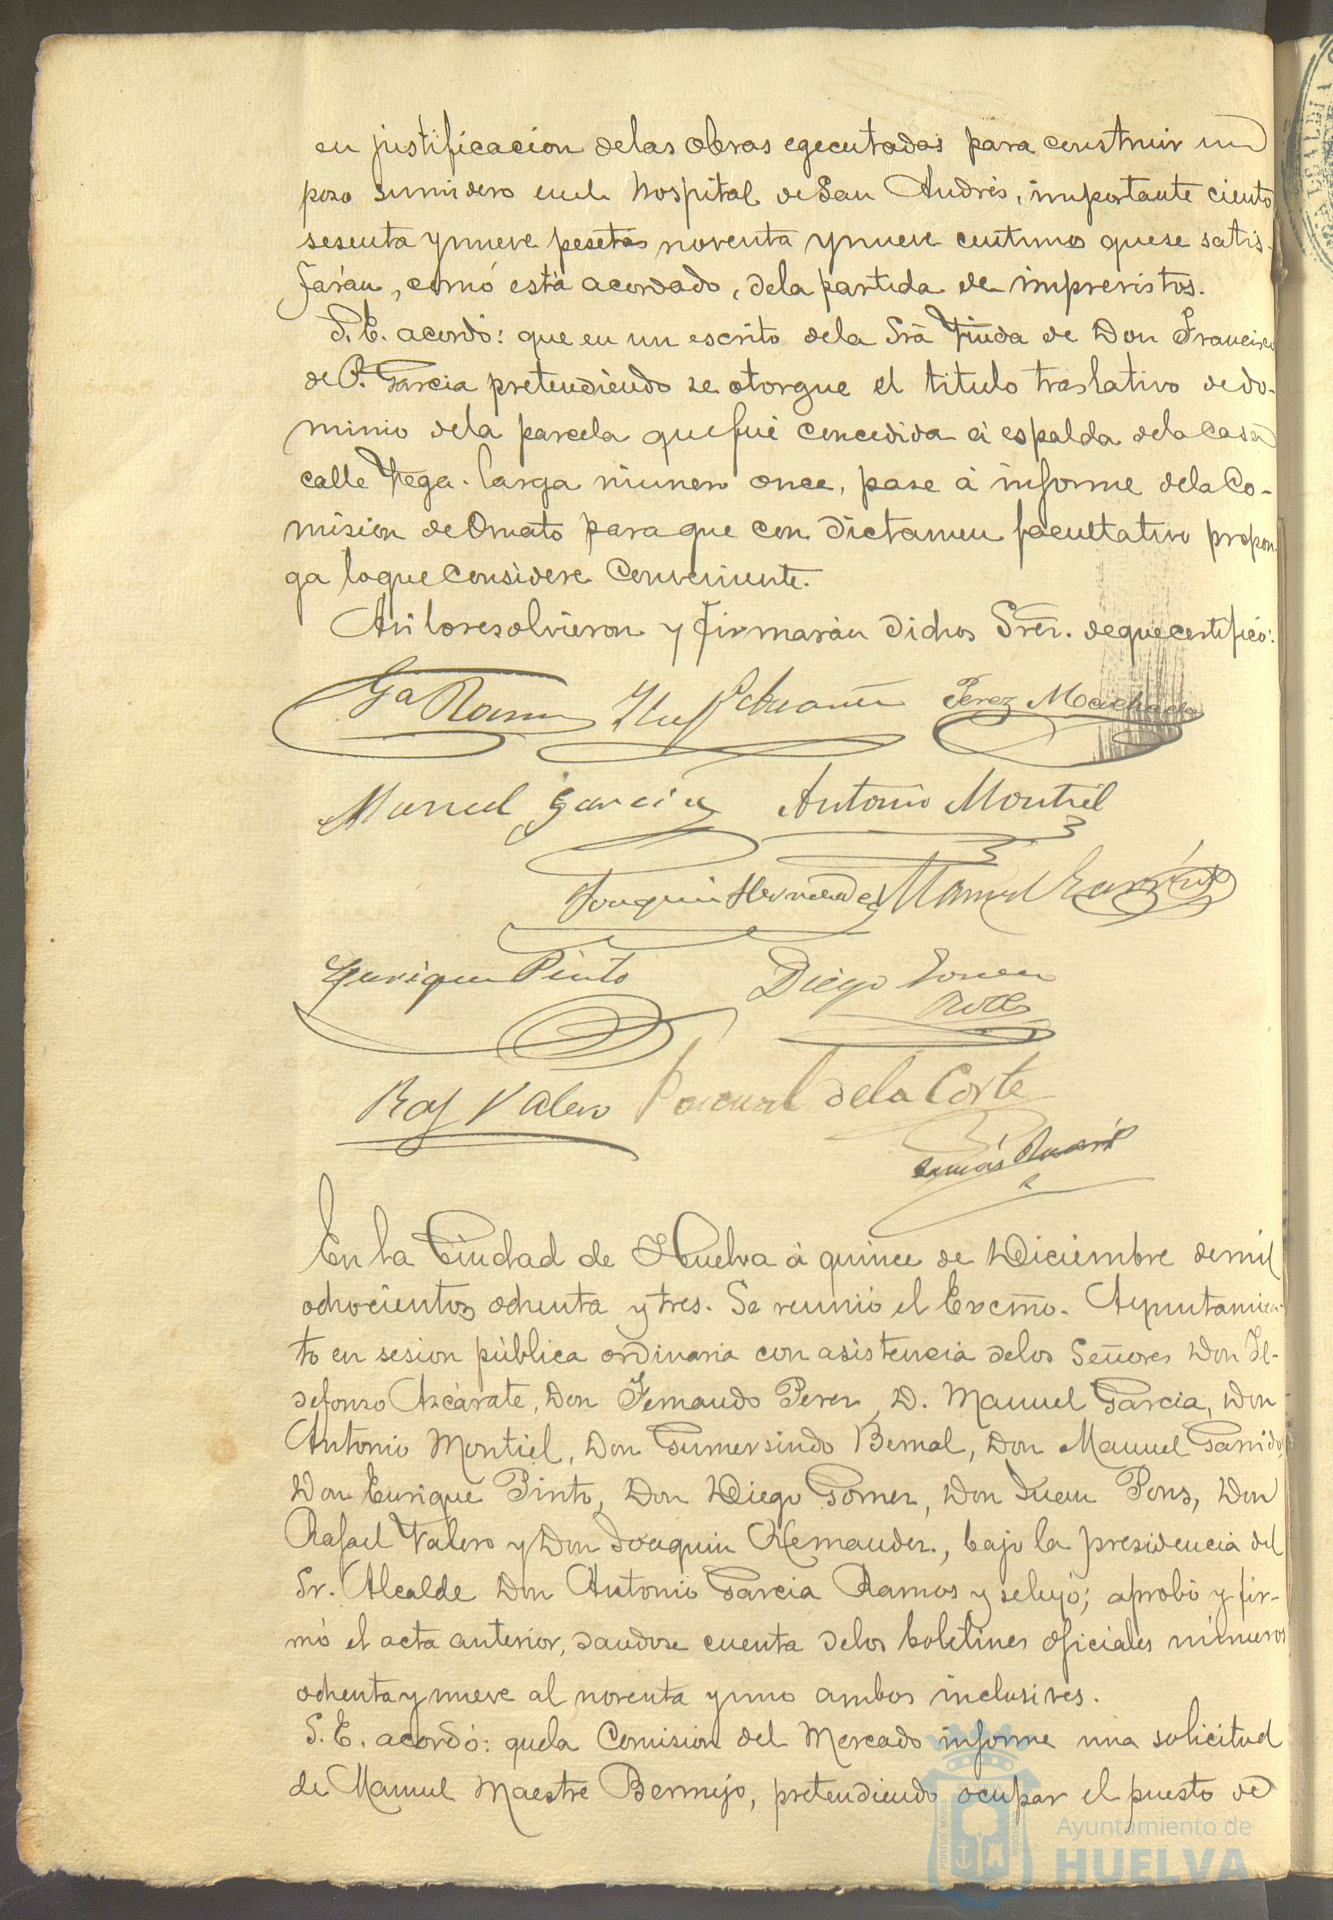 en justificacion delas obras egecutadas para construir un
pozo sumidero enel hospital de San Andrés, importante ciento
sesenta y nueve pesetas noventa y nueve centimos que se satis-
farán, comó está acordado, dela partida de imprevistos.
S. E. acordó: que en un escrito dela Srã Viuda de Don Francisco
de P. Garcia pretendiendo se otorgue el titulo traslativo de do-
minio dela parcela que fué concedida á espalda dela casa
calle Vega-larga número once, pase á informe dela Co-
mision de Ornato para que con dictamen facultativo propon-
ga loque considere conveniente.
Asi lo resolvieron y firmarán dichos Sres. de que certifico:
Gª Ramos Perez Machado
Manuel Garcia Antonio Montiel
Joaquin Hernandez Manuel Garrido
Enrique Pinto Diego Gomez
Raf Valero Pascual dela Corte
En la Ciudad de Huelva á quince de Diciembre de mil
ochocientos ochenta y tres. Se reunió el Excmo. Ayuntamien-
to en sesion pública ordinaria con asistencia delos Señores Don Il-
defonso Azcárate, Don Fernando Perez, D. Manuel Garcia, Don
Antonio Montiel, Don Gumersindo Bernal, Don Manuel Garrido,
Don Enrique Pinto, Don Diego Gomez, Don Juan Pons, Don
Rafael Valero y Don Joaquin Hernandez, bajo la presidencia del
Sr. Alcalde Don Antonio Garcia Ramos y seleyó; aprobó y fir-
mó el acta anterior, dandose cuenta delos boletines oficiales números
ochenta y nueve al noventa y uno ambos inclusives.
S. E. acordó: quela Comision del Mercado informe una solicitud
de Manuel Maestre Bermejo, pretendiendo ocupar el puesto de
Ayuntamiento de
HUELVA